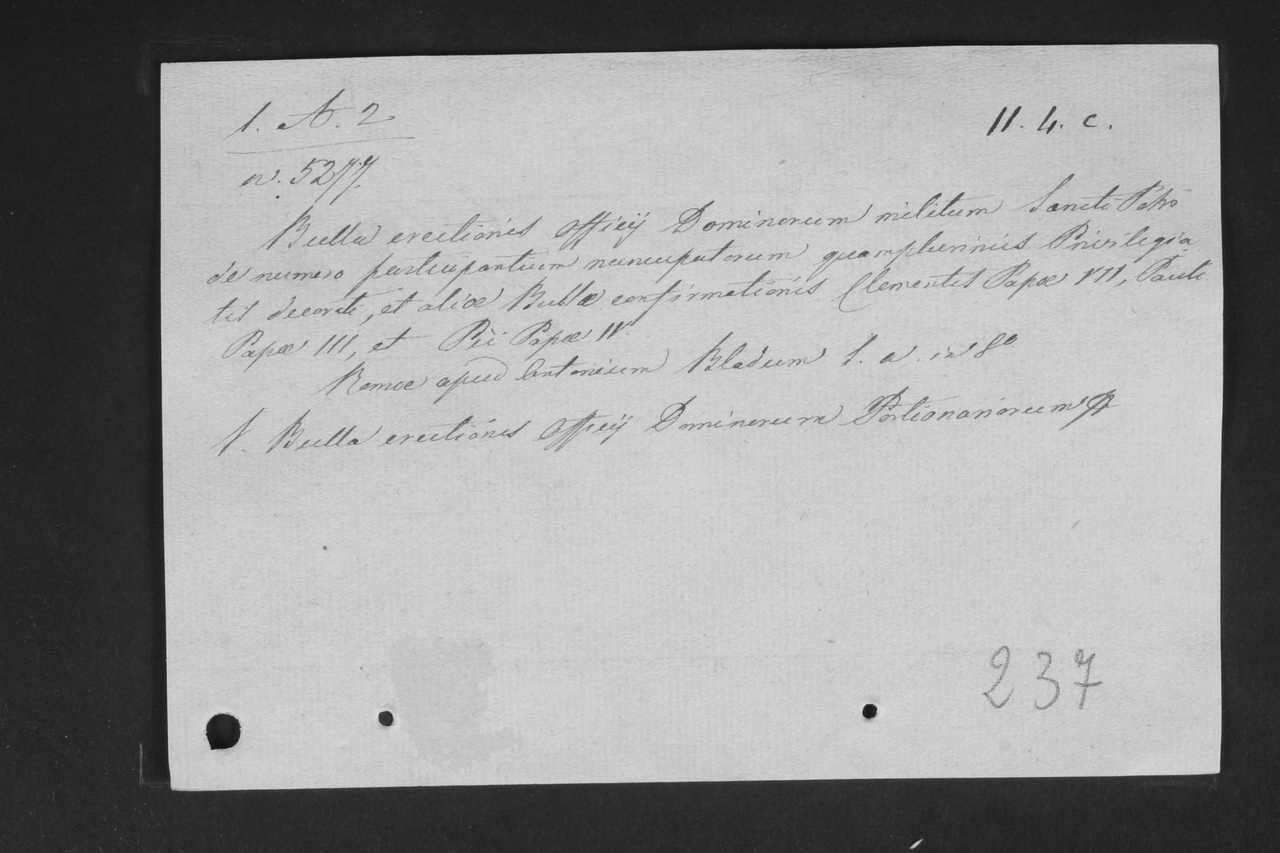 1. A. 2
11. 4. c.
n. 5277.
Bulla erectionis Officij Dominorum militum Sancti Petri
de numero participantium nuncupatorum quamplurimis Privilegia
tis decorati, et aliæ Bullæ confirmationis Clementis Papæ VII, Pauli
Papæ III, et Pii Papæ IV.
Romæ apud Antonium Bladum S. a. in 8º
V. Bulla erectionis Officij Dominorum Portionariorum
237